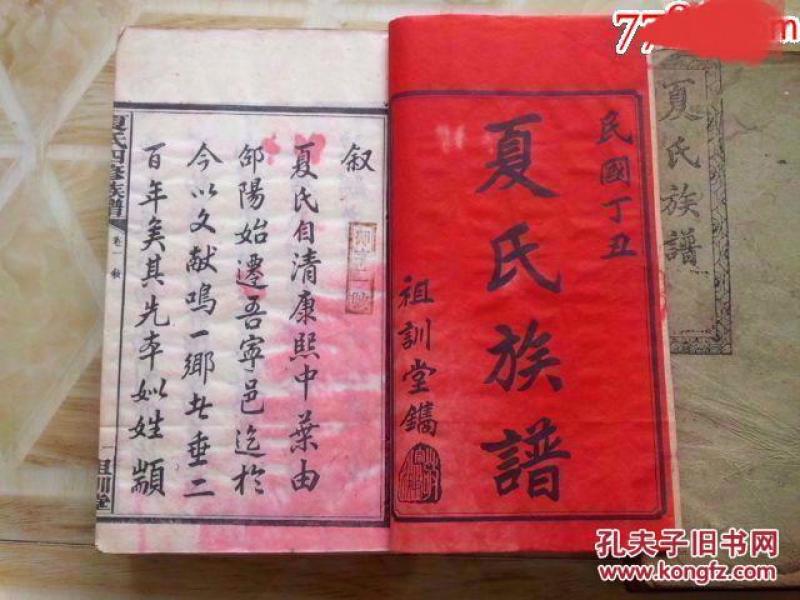 民國丁丑
夏氏族譜
祖訓堂鐫
叙
夏氏自清康熙中葉由
邵陽始遷吾寧邑迄於
今以文献鳴一鄉者垂二
百年矣其先本姒姓顓
夏氏四修族譜
卷一 叙
一
祖訓堂
夏氏族譜
孔夫子旧书网
www.kongfz.com